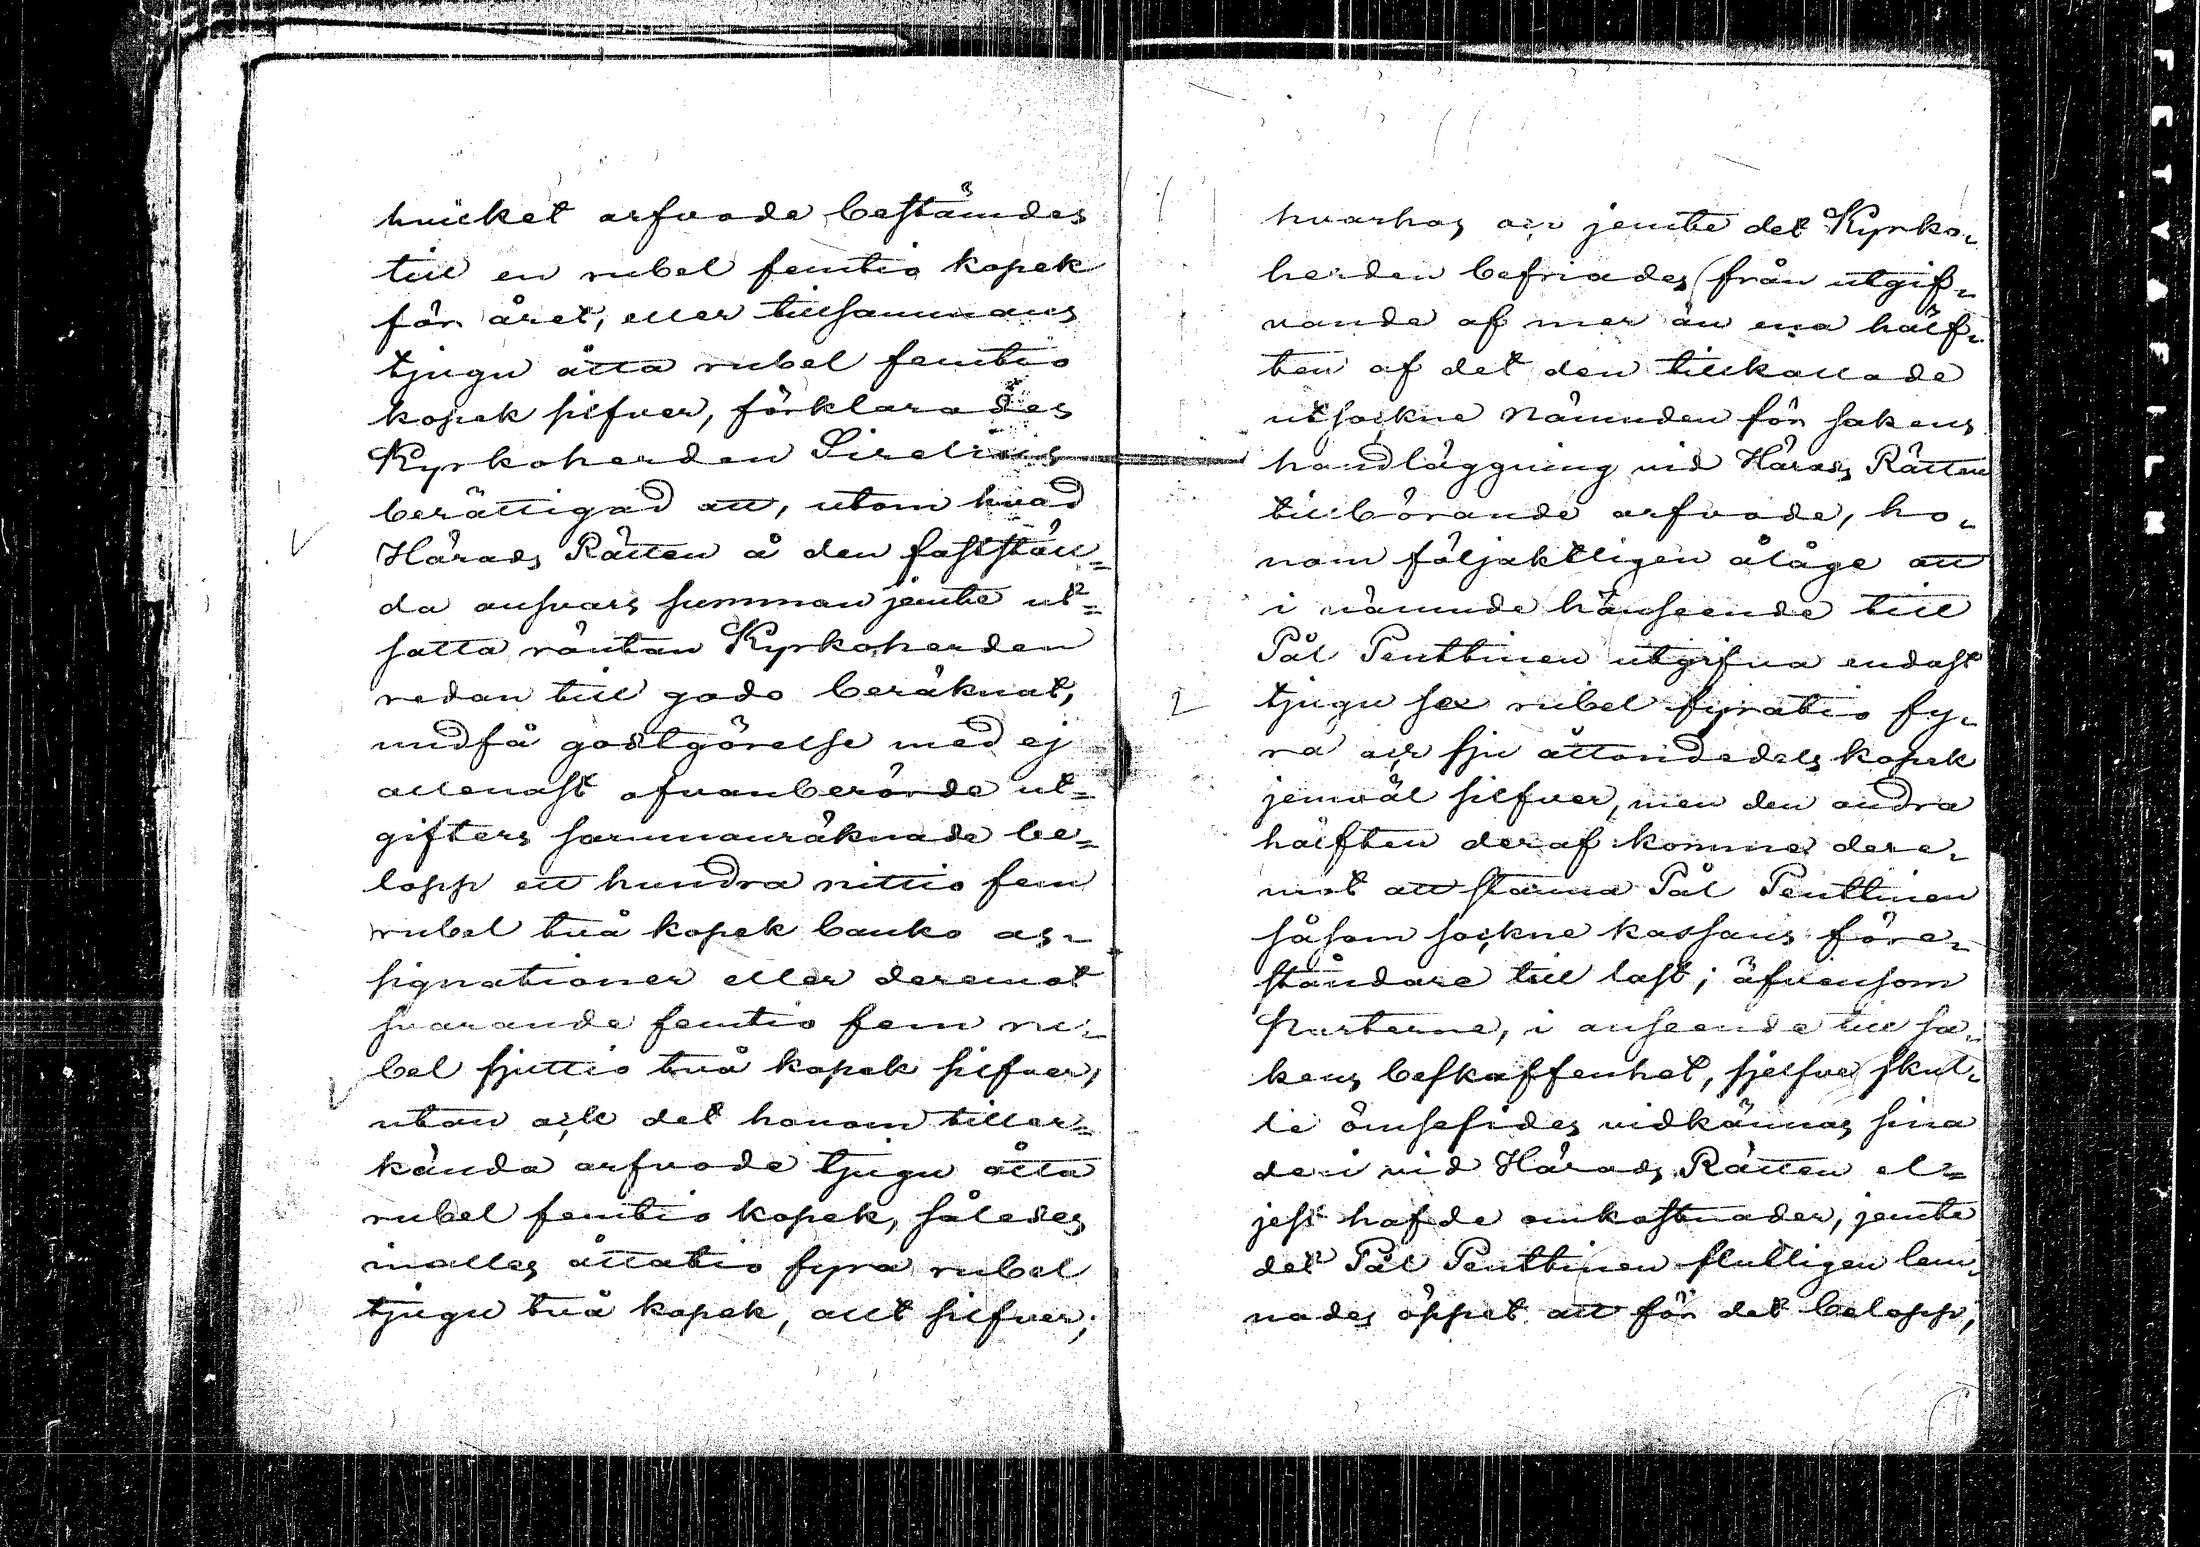 hvilket arfvode bestämdes
till en rubel femtio kopek
för året, eller tillsammans
tjugu åtta rubel femtio
kopek silfver, förklarades
Kyrkoherden Sirelius
berättigad att, utom hvad
Härads Rätten å den fastställ=
da ansvars summan jemte ut=
satta räntan Kyrkoherden
redan till godo beräknat,
undfå godtgörelse med ej
allenast ofvanberörde ut=
gifters sammanräknade be=
lopp ett hundra nittio fem
rubel två kopek banko as-
signationer eller deremot
svarande femtio fem ru-
bel sjuttio två kopek silfver,
utan ock det honom tiller=
kända arfvode tjugu åtta
rubel femtio kopek, således
inalles åttatio fyra rubel
tjugu två kopek, allt silfver;
hvarhos ock jemte det Kyrko-
herden befriades från utgif-
vande af mer än ena hälf-
ten af det den tillkallade
utsockne Nämnden för sakens
handläggning vid Härads Rätten
tillbörande arfvode, ho-
nom följaktligen ålåge att
i nämnde hänseende till
Pål Penttinen utgifva endast
tjugu sex rubel fyratio fy-
ra och sju åttondedels kopek
jemväl silfver, men den andra
hälften deraf komme dere-
mot att stanna Pål Penttinen
såsom sockne kassans före-
ståndare till last; äfvensom
Parterne, i anseende till sa-
kens beskaffenhet, sjelfve skul-
le ömsesides vidkännas sina
der i vid Härads Rätten el=
jest hafde omkostnader, jemte
det Pål Penttinen slutligen lem-
nades öppet att för det belopp,